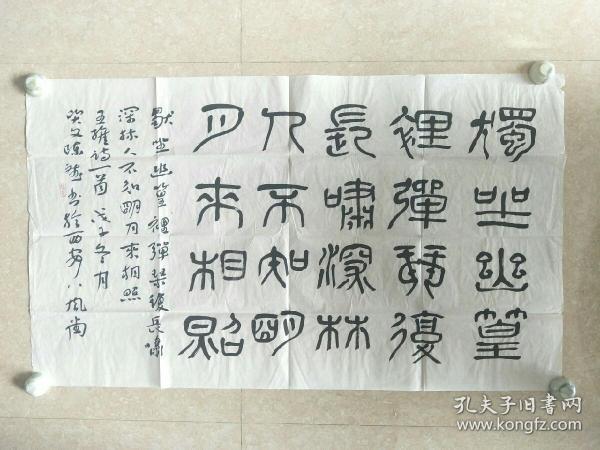 獨坐幽篁
裡彈琴復
長嘯深林
人不知明
月來相照
獨坐幽篁裡彈琴復長嘯
深林人不知明月來相照
王維詩一首戊子冬月
書於西安
孔夫子旧書网
www.kongfz.com